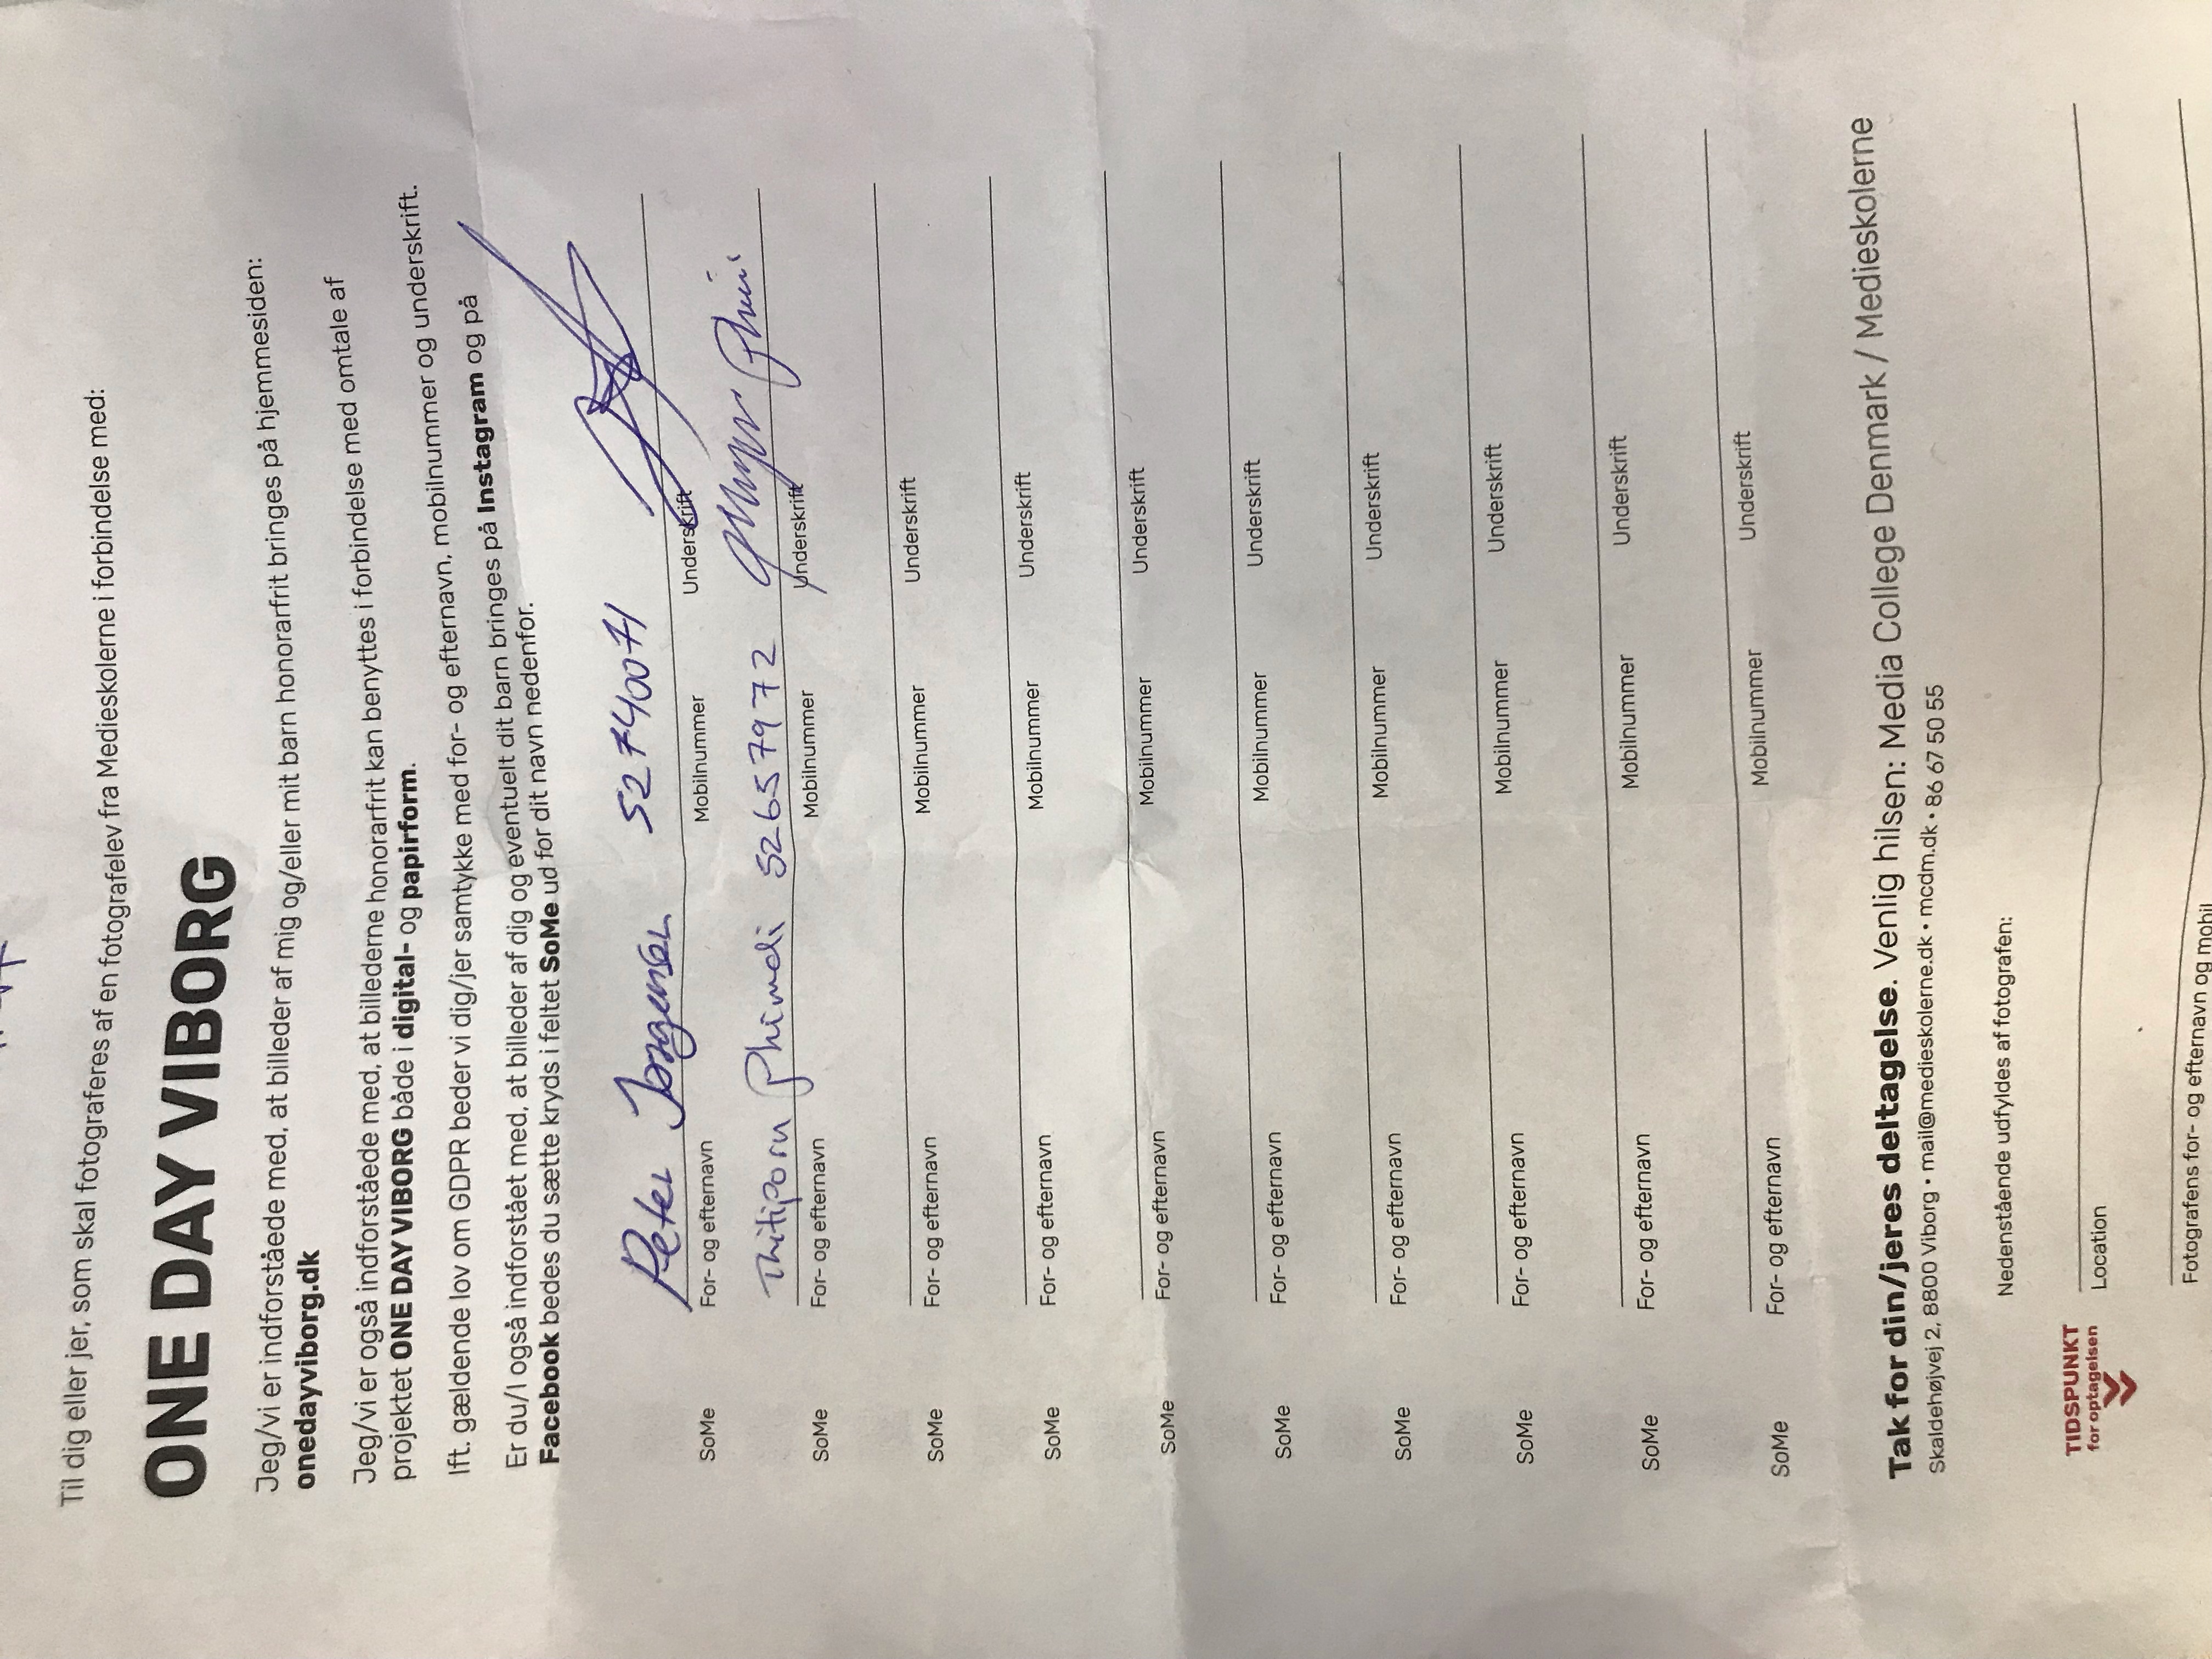 Til dig eller jer, som skal fotograferes af en fotografelev fra Medieskolerne i forbindelse med:
ONE DAY VIBORG
Jeg/vi er indforståede med, at billeder af mig og/eller mit barn honorarfrit bringes på hjemmesiden:
onedayviborg.dk
Jeg/vi er også indforståede med, at billederne honorarfrit kan benyttes i forbindelse med omtale af
projektet ONE DAY VIBORG både i digital- og papirform.
Ift. gældende lov om GDPR beder vi dig/jer samtykke med for- og efternavn, mobilnummer og underskrift.
Er du/I også indforstået med, at billeder af dig og eventuelt dit barn bringes på Instagram og på
Facebook bedes du sætte kryds i feltet SoMe ud for dit navn nedenfor.
Peter Jørgensen 52740071
SoMe For- og efternavn Mobilnummer Underskrift
Thitiporn Phimdi 52657972
SoMe For- og efternavn Mobilnummer Underskrift
SoMe For- og efternavn Mobilnummer Underskrift
SoMe For- og efternavn Mobilnummer Underskrift
SoMe For- og efternavn Mobilnummer Underskrift
SoMe For- og efternavn Mobilnummer Underskrift
SoMe For- og efternavn Mobilnummer Underskrift
SoMe For- og efternavn Mobilnummer Underskrift
SoMe For- og efternavn Mobilnummer Underskrift
SoMe For- og efternavn Mobilnummer Underskrift
Tak for din/jeres deltagelse. Venlig hilsen: Media College Denmark / Medieskolerne
Skaldehøjvej 2, 8800 Viborg • mail@medieskolerne.dk • mcdm.dk • 86 67 50 55
Nedenstående udfyldes af fotografen:
TIDSPUNKT
for optagelsen
Location
Fotografens for- og efternavn og mobil